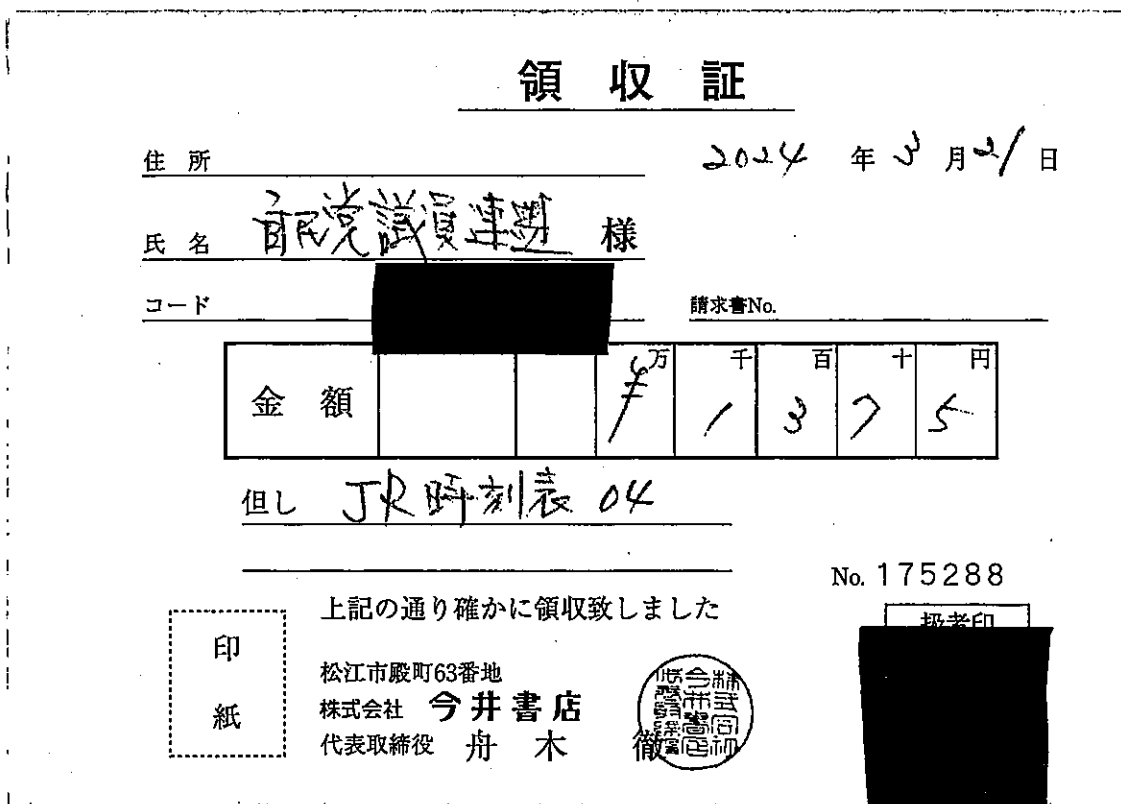 領収証
住所
2024年3月21日
氏名 自民党議員連盟 様
コード
請求書No.
金額 ¥万 1千 3百 7十 5円
但し JR時刻表 04
No. 175288
上記の通り確かに領収致しました
扱者印
印紙
松江市殿町63番地
株式会社 今井書店
代表取締役 舟木 徹